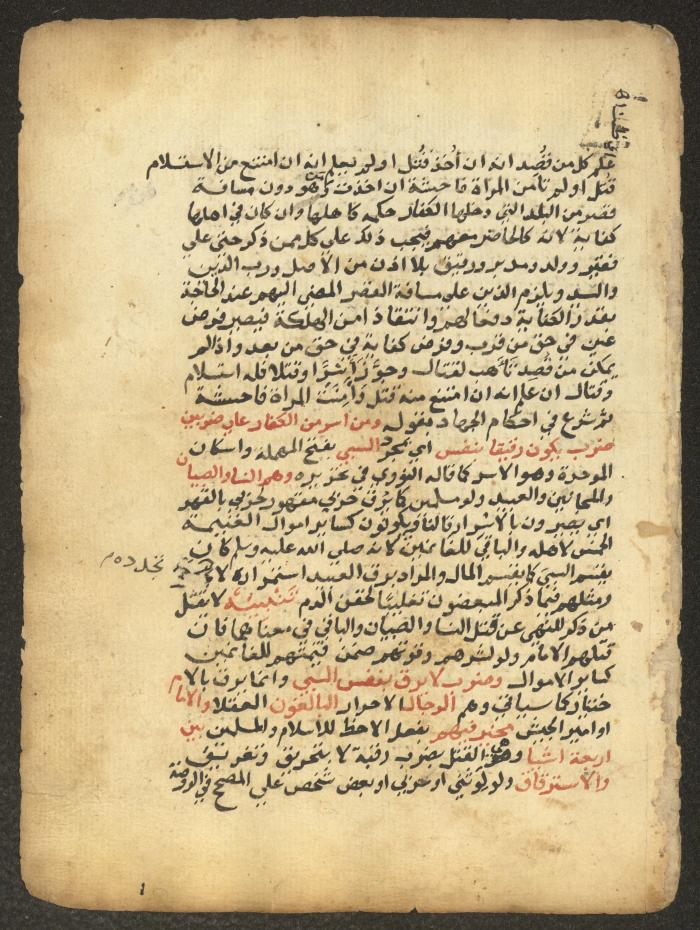 علم كل من قصد انه ان أُخذ قُتل او لم يعلم انه ان امتنع من الاستسلام
قتل او لم تأمن المراة فاحشة ان اخذت ومن هو دون مسافة
قصر من البلد التي دخلها الكفار حكمه كاهلها وان كان في اهلها
كفاية لانه كالحاضر معهم فيجب ذلك على كل ممن ذكر حتى على
فقير وولد ومدبر ورقيق بلا اذن من الاصل ورب الدين
والسيد ويلزم الذين على مسافة القصر المضي اليهم عند الحاجة
بقدر الكفاية دفعا لهم وانقاذا من الهلكة فيصير فرض
عين في حق من قرب وفرض كفاية في حق من بعد واذا لم
يمكن من قصد تأهب لقتال وجوز أسرا وقتلا فله استسلام
وقتال ان علم انه ان امتنع منه قتل وأمنت المراة فاحشة
ثم شرع في احكام الجهاد بقوله ومن اسر من الكفار على ضربين
ضرب يكون رقيقا بنفس اي بمجرد السبي بفتح المهملة واسكان
الموحدة وهو الاسر كما قاله النووي في تحريره وهم النسا والصبيان
والمجانين والعبيد ولو مسلمين كما يرق حربي مقهور لحربي بالقهر
اي يصيرون بالاسر ارقا لنا ويكونون كساير اموال الغنيمة
الخمس لاهله والباقي للغانمين لانه صلى الله عليه وسلم كان
يقسم السبي كما يقسم المال والمراد برق العبيد استمراره لا تجدده
ومثلهم فيما ذكر المبعضون تغليبا لحقن الدم تنبيه لا يقتل
من ذكر للنهي عن قتل النسا والصبيان والباقي في معناهما فان
قتلهم الامام ولو لشرهم وقوتهم ضمن قيمتهم للغانمين
كساير الاموال وضرب لا يرق بنفس السبي وانما يرق بالا
ختيار كما سياتي وهم الرجال الاحرار البالغون العقلا والامام
او امير الجيش مخير فيهم بفعل الاحظ للاسلام والمسلمين بين
اربعة اشيا وهي القتل بضرب رقبة لا بتحريق وتغريق
والاسترقاق ولو لوثني او عربي او بعض شخص على المصحح في الروضة